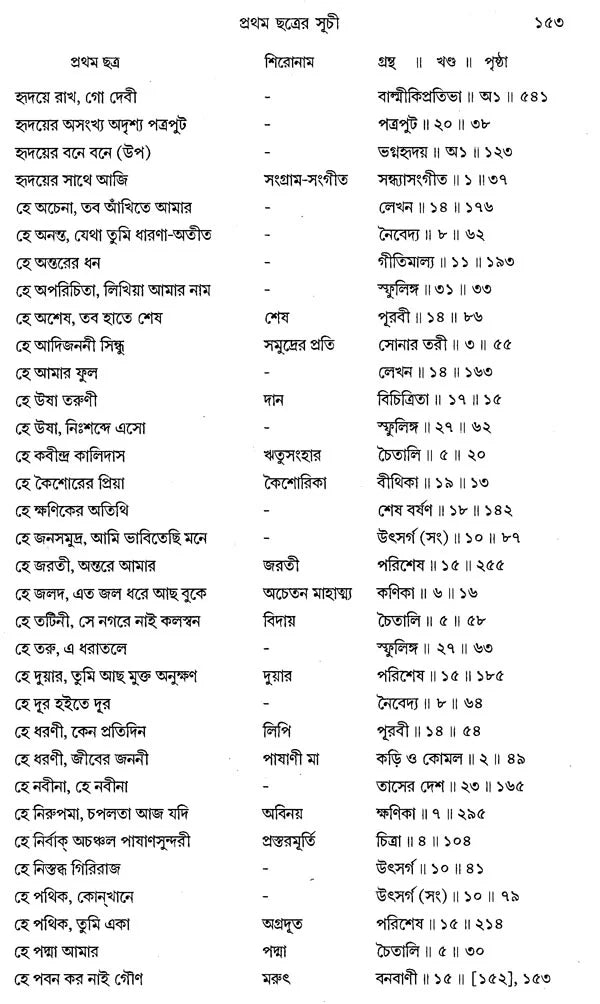 প্রথম ছত্রের সূচী ১৫৩
প্রথম ছত্র শিরোনাম গ্রন্থ ॥ খণ্ড ॥ পৃষ্ঠা
হৃদয়ে রাখ, গো দেবী - বাল্মীকিপ্রতিভা ॥ অ১ ॥ ৫৪১
হৃদয়ের অসংখ্য অদৃশ্য পত্রপুট - পত্রপুট ॥ ২০ ॥ ৩৮
হৃদয়ের বনে বনে (উপ) - ভগ্নহৃদয় ॥ অ১ ॥ ১২৩
হৃদয়ের সাথে আজি সংগ্রাম-সংগীত সন্ধ্যাসংগীত ॥ ১ ॥ ৩৭
হে অচেনা, তব আঁখিতে আমার - লেখন ॥ ১৪ ॥ ১৭৬
হে অনন্ত, যেথা তুমি ধারণা-অতীত - নৈবেদ্য ॥ ৮ ॥ ৬২
হে অন্তরের ধন - গীতিমাল্য ॥ ১১ ॥ ১৯৩
হে অপরিচিতা, লিখিয়া আমার নাম - স্ফুলিঙ্গ ॥ ৩১ ॥ ৩৩
হে অশেষ, তব হাতে শেষ শেষ পূরবী ॥ ১৪ ॥ ৮৬
হে আদিজননী সিন্ধু সমুদ্রের প্রতি সোনার তরী ॥ ৩ ॥ ৫৫
হে আমার ফুল - লেখন ॥ ১৪ ॥ ১৬৩
হে উষা তরুণী দান বিচিত্রিতা ॥ ১৭ ॥ ১৫
হে উষা, নিঃশব্দে এসো - স্ফুলিঙ্গ ॥ ২৭ ॥ ৬২
হে কবীন্দ্র কালিদাস ঋতুসংহার চৈতালি ॥ ৫ ॥ ২০
হে কৈশোরের প্রিয়া কৈশোরিকা বীথিকা ॥ ১৯ ॥ ১৩
হে ক্ষণিকের অতিথি - শেষ বর্ষণ ॥ ১৮ ॥ ১৪২
হে জনসমুদ্র, আমি ভাবিতেছি মনে - উৎসর্গ (সং) ॥ ১০ ॥ ৮৭
হে জরতী, অন্তরে আমার জরতী পরিশেষ ॥ ১৫ ॥ ২৫৫
হে জলদ, এত জল ধরে আছ বুকে অচেতন মাহাত্ম্য কণিকা ॥ ৬ ॥ ১৬
হে তটিনী, সে নগরে নাই কলস্বন বিদায় চৈতালি ॥ ৫ ॥ ৫৮
হে তরু, এ ধরাতলে - স্ফুলিঙ্গ ॥ ২৭ ॥ ৬৩
হে দুয়ার, তুমি আছ মুক্ত অনুক্ষণ দুয়ার পরিশেষ ॥ ১৫ ॥ ১৮৫
হে দূর হইতে দূর - নৈবেদ্য ॥ ৮ ॥ ৬৪
হে ধরণী, কেন প্রতিদিন লিপি পূরবী ॥ ১৪ ॥ ৫৪
হে ধরণী, জীবের জননী পাষাণী মা কড়ি ও কোমল ॥ ২ ॥ ৪৯
হে নবীনা, হে নবীনা - তাসের দেশ ॥ ২৩ ॥ ১৬৫
হে নিরুপমা, চপলতা আজ যদি অবিনয় ক্ষণিকা ॥ ৭ ॥ ২৯৫
হে নির্বাক্ অচঞ্চল পাষাণসুন্দরী প্রস্তরমূর্তি চিত্রা ॥ ৪ ॥ ১০৪
হে নিস্তব্ধ গিরিরাজ - উৎসর্গ ॥ ১০ ॥ ৪১
হে পথিক, কোন্‌খানে - উৎসর্গ (সং) ॥ ১০ ॥ ৭৯
হে পথিক, তুমি একা অগ্রদূত পরিশেষ ॥ ১৫ ॥ ২১৪
হে পদ্মা আমার পদ্মা চৈতালি ॥ ৫ ॥ ৩০
হে পবন কর নাই গৌণ মরুৎ বনবাণী ॥ ১৫ ॥ [১৫২], ১৫৩